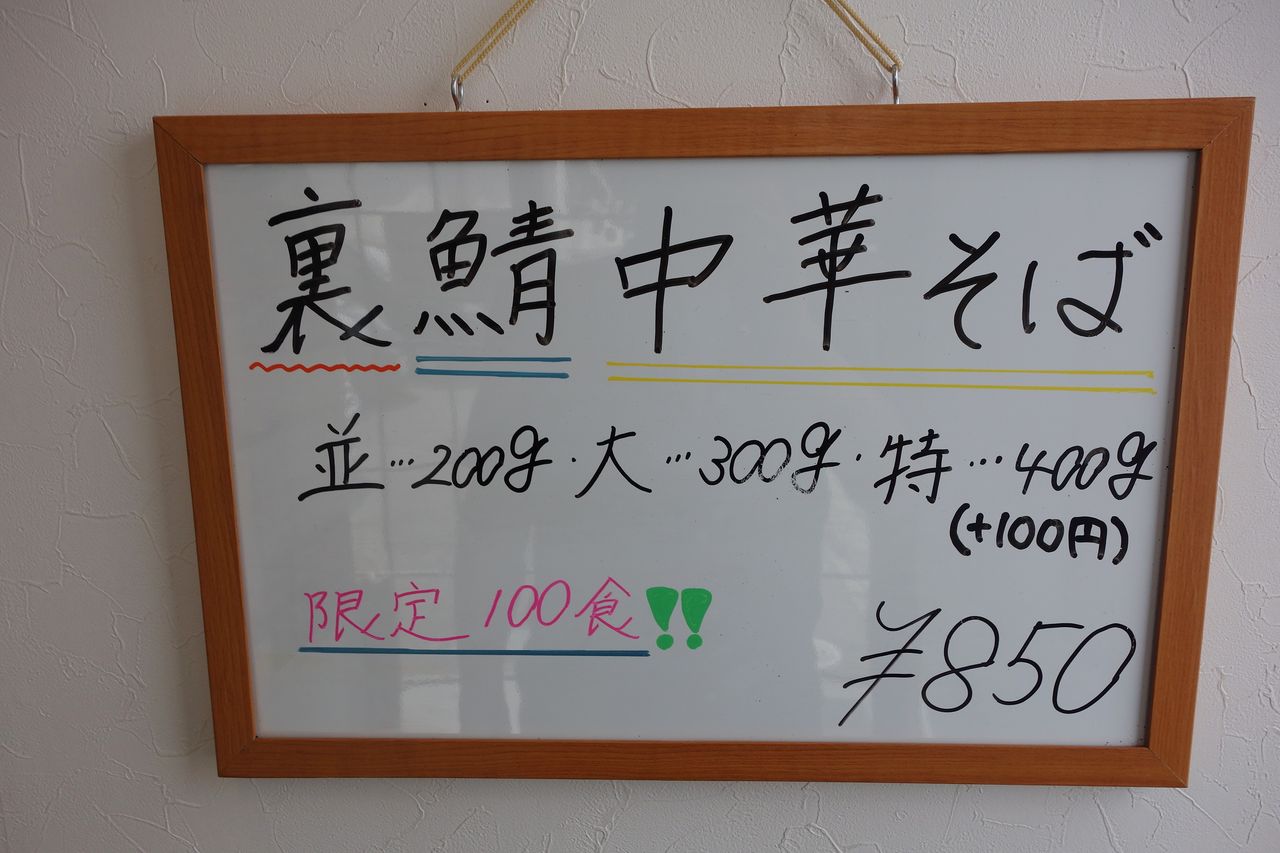 裏鯖中華そば
並…200g・大…300g・特…400g
(+100円)
限定 100食!!
¥850